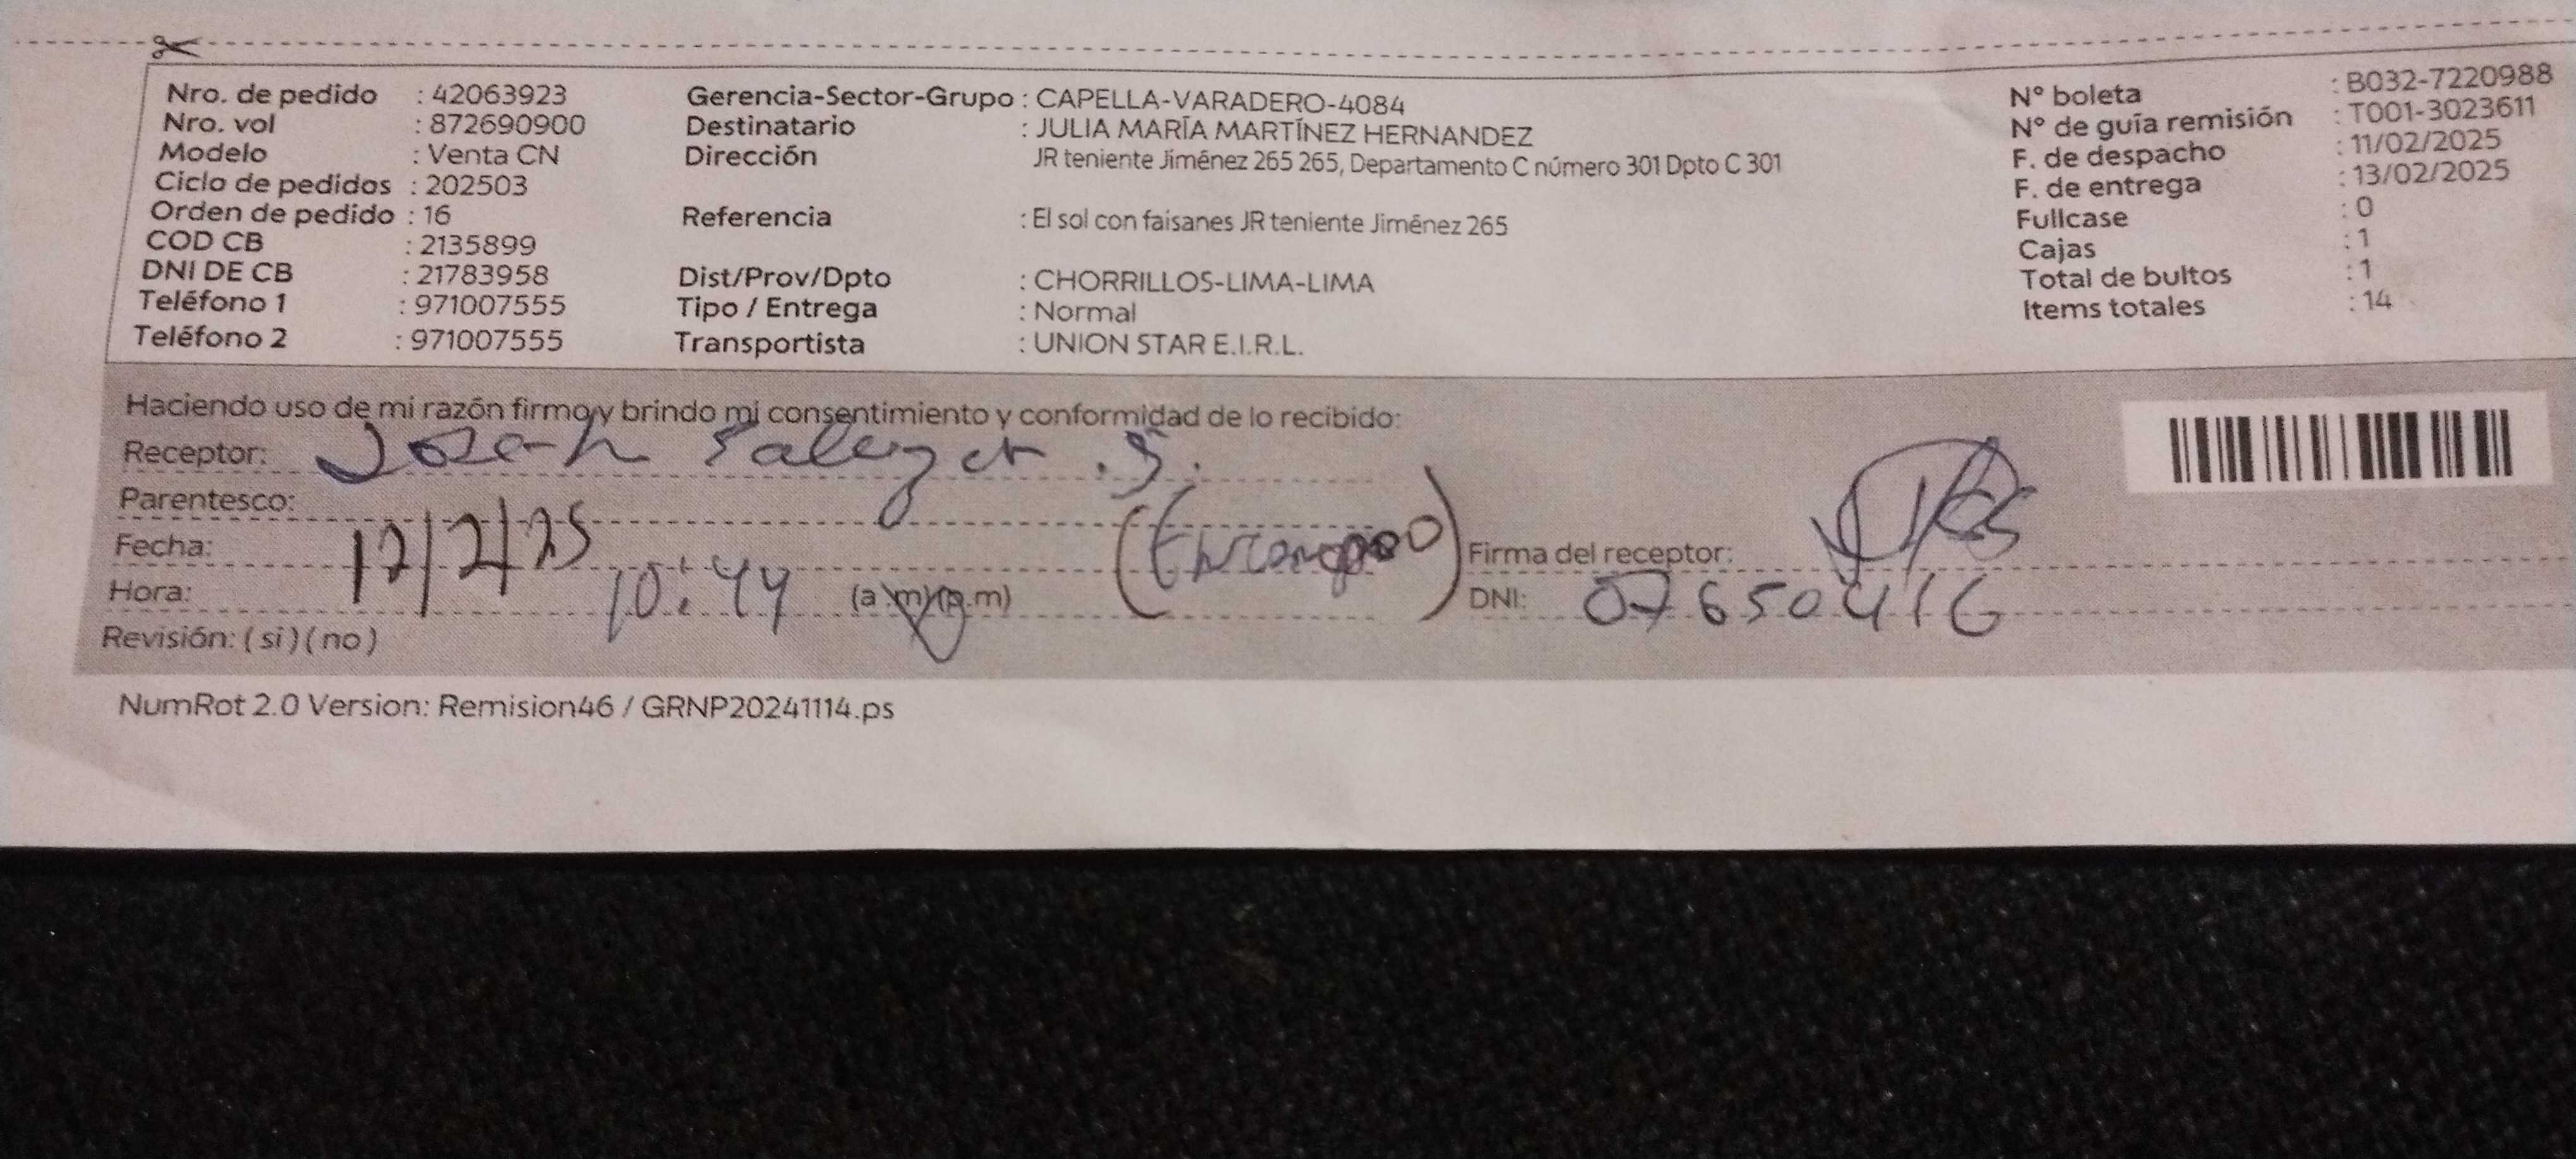 Nro. de pedido : 42063923
Nro. vol : 872690900
Modelo : Venta CN
Ciclo de pedidos : 202503
Orden de pedido : 16
COD CB : 2135899
DNI DE CB : 21783958
Teléfono 1 : 971007555
Teléfono 2 : 971007555
Gerencia-Sector-Grupo : CAPELLA-VARADERO-4084
Destinatario : JULIA MARÍA MARTÍNEZ HERNANDEZ
Dirección JR teniente Jiménez 265 265, Departamento C número 301 Dpto C 301
Referencia : El sol con faisanes JR teniente Jiménez 265
Dist/Prov/Dpto : CHORRILLOS-LIMA-LIMA
Tipo / Entrega : Normal
Transportista : UNION STAR E.I.R.L.
N° boleta : B032-7220988
N° de guía remisión : T001-3023611
F. de despacho : 11/02/2025
F. de entrega : 13/02/2025
Fullcase : 0
Cajas : 1
Total de bultos : 1
Items totales : 14
Haciendo uso de mi razón firmo y brindo mi consentimiento y conformidad de lo recibido:
Receptor: S.
Parentesco:
Fecha: 12/2/25
Hora: 10:44 (a.m)(p.m)
Revisión: ( si ) ( no )
Firma del receptor:
DNI: 07650416
NumRot 2.0 Version: Remision46 / GRNP20241114.ps